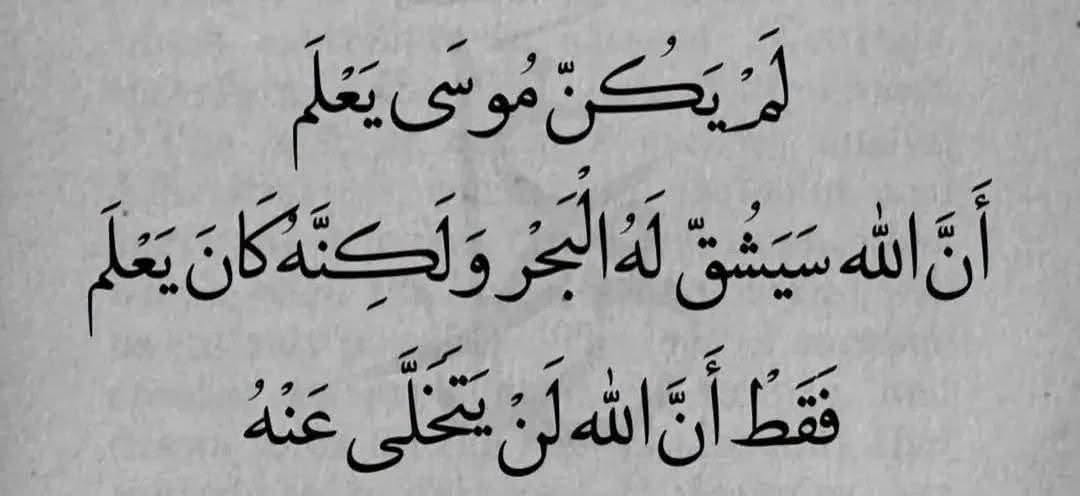 لَمْ يَكُنّ مُوسَى يَعْلَم
أَنَّ الله سَيَشُقّ لَهُ الْبَحْر وَلَكِنَّهُ كَانَ يَعْلَم
فَقَطْ أَنَّ الله لَنْ يَتَخَلَّى عَنْهُ